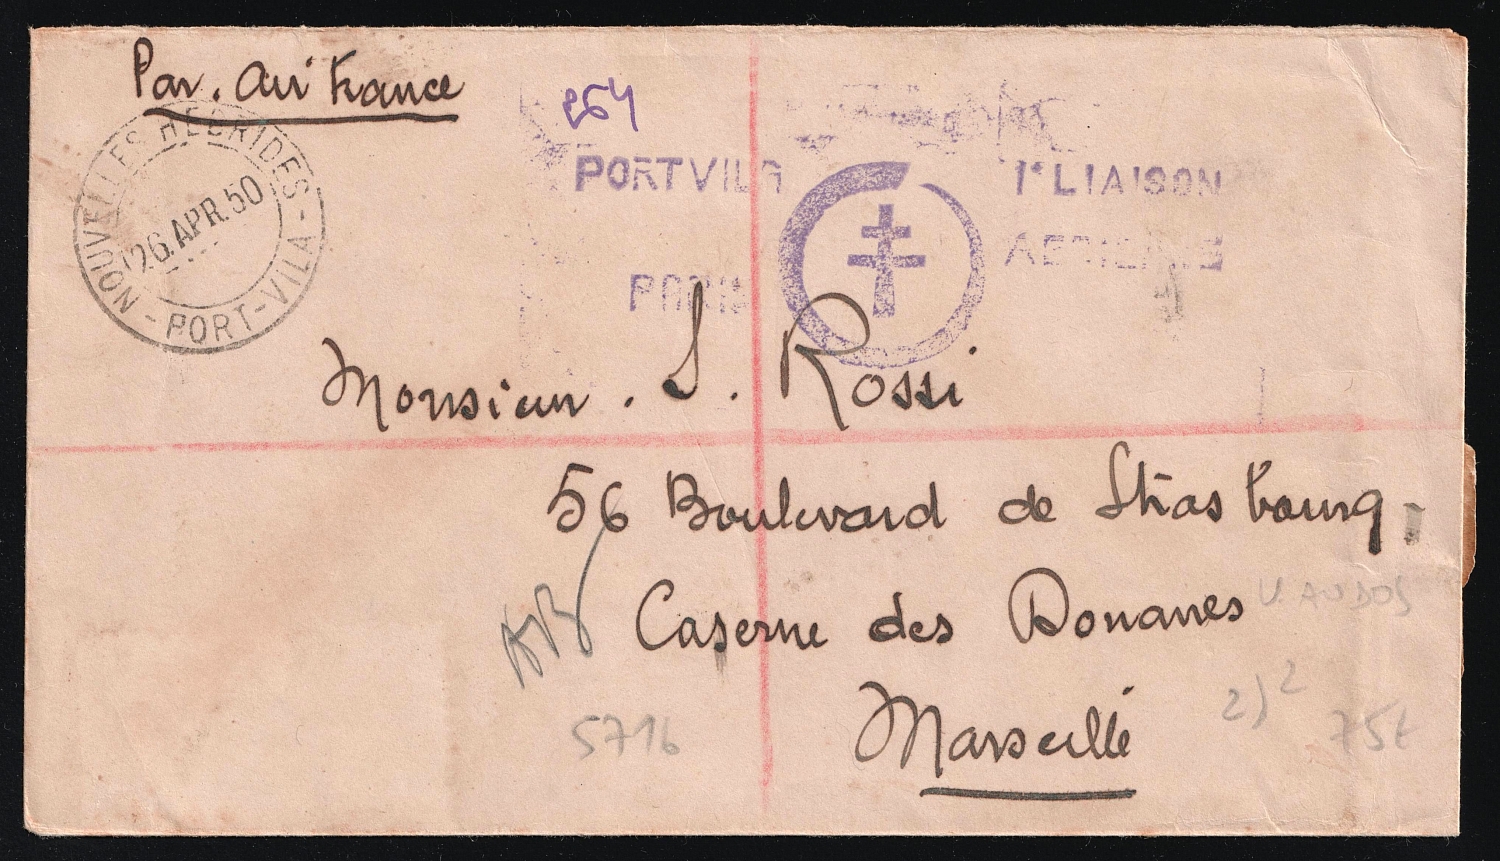 Par. Air France
264
NOUVELLES HEBRIDES
26.APR.50
- PORT-VILA -
PORTVILA
PARIS
1e LIAISON
AERIENNE
Monsieur. S. Rossi
56 Boulevard de Strasbourg.
Caserne des Douanes
Marseille
V. AU DOS
5716
2) 2
75t